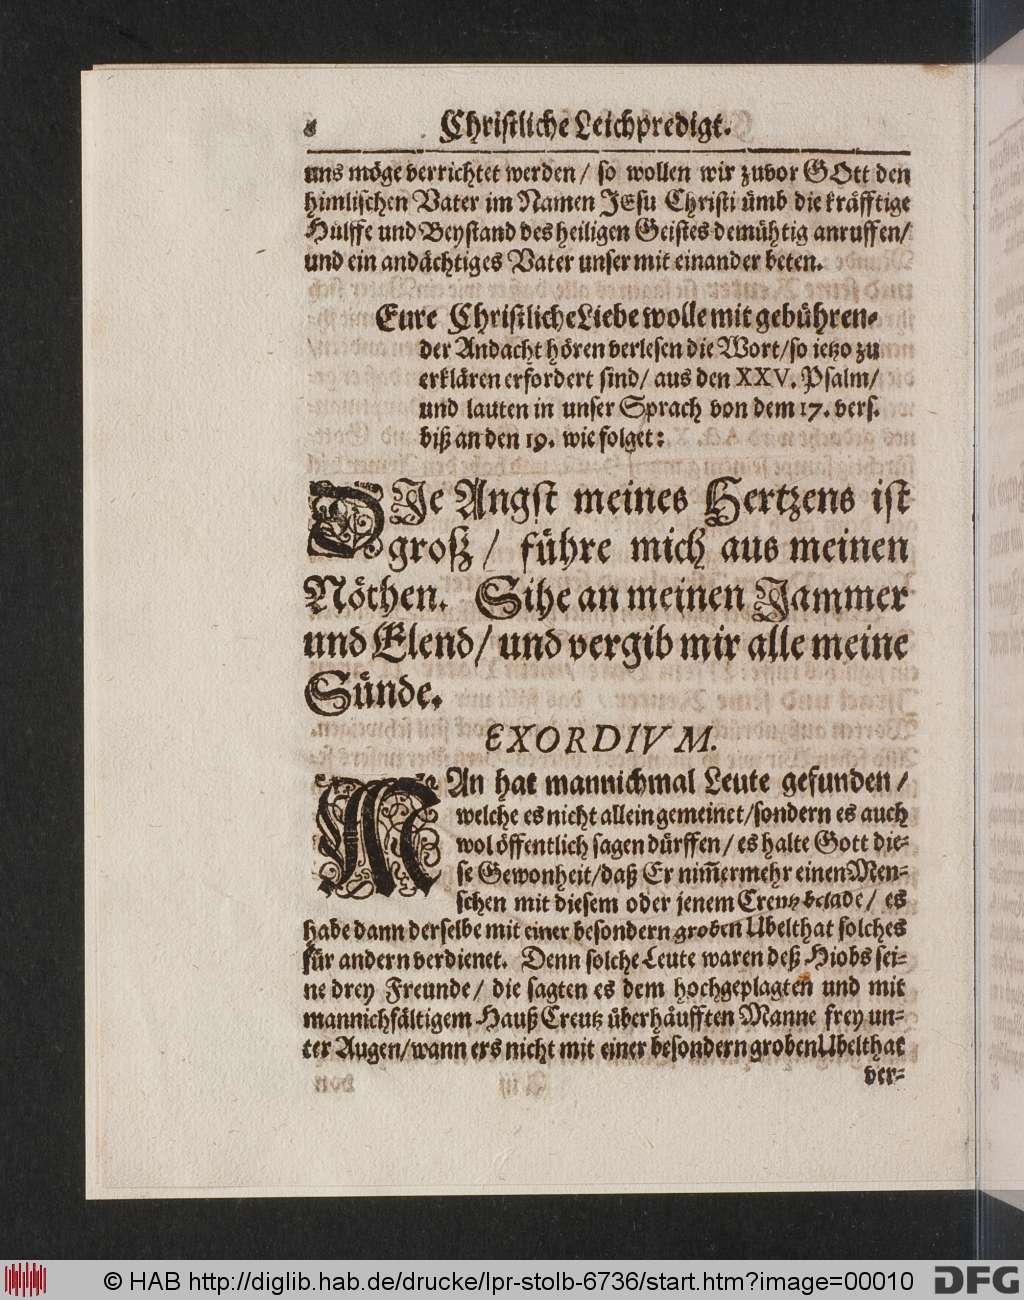 8 Christliche Leichpredigt.
uns möge verrichtet werden / so wollen wir zuvor GOtt den
himlischen Vater im Namen JEsu Christi ümb die kräfftige
Hülffe und Beystand des heiligen Geistes demühtig anruffen /
und ein andächtiges Vater unser mit einander beten.
Eure Christliche Liebe wolle mit gebühren-
der Andacht hören verlesen die Wort / so ietzo zu
erklären erfordert sind / aus den XXV. Psalm /
und lauten in unser Sprach von dem 17. vers.
biß an den 19. wie folget:
DIe Angst meines Hertzens ist
groß / führe mich aus meinen
Nöthen. Sihe an meinen Jammer
und Elend / und vergib mir alle meine
Sünde.
EXORDIVM.
MAn hat mannichmal Leute gefunden /
welche es nicht allein gemeinet / sondern es auch
wol öffentlich sagen dürffen / es halte Gott die-
se Gewonheit / daß Er nim̃ermehr einen Men-
schen mit diesem oder jenem Creutz belade / es
habe dann derselbe mit einer besondern groben Ubelthat solches
für andern verdienet. Denn solche Leute waren deß Hiobs sei-
ne drey Freunde / die sagten es dem hochgeplagten und mit
mannichfältigem Hauß Creutz überhäufften Manne frey un-
ter Augen / wann ers nicht mit einer besondern groben Ubelthat
ver-
© HAB http://diglib.hab.de/drucke/lpr-stolb-6736/start.htm?image=00010
DFG